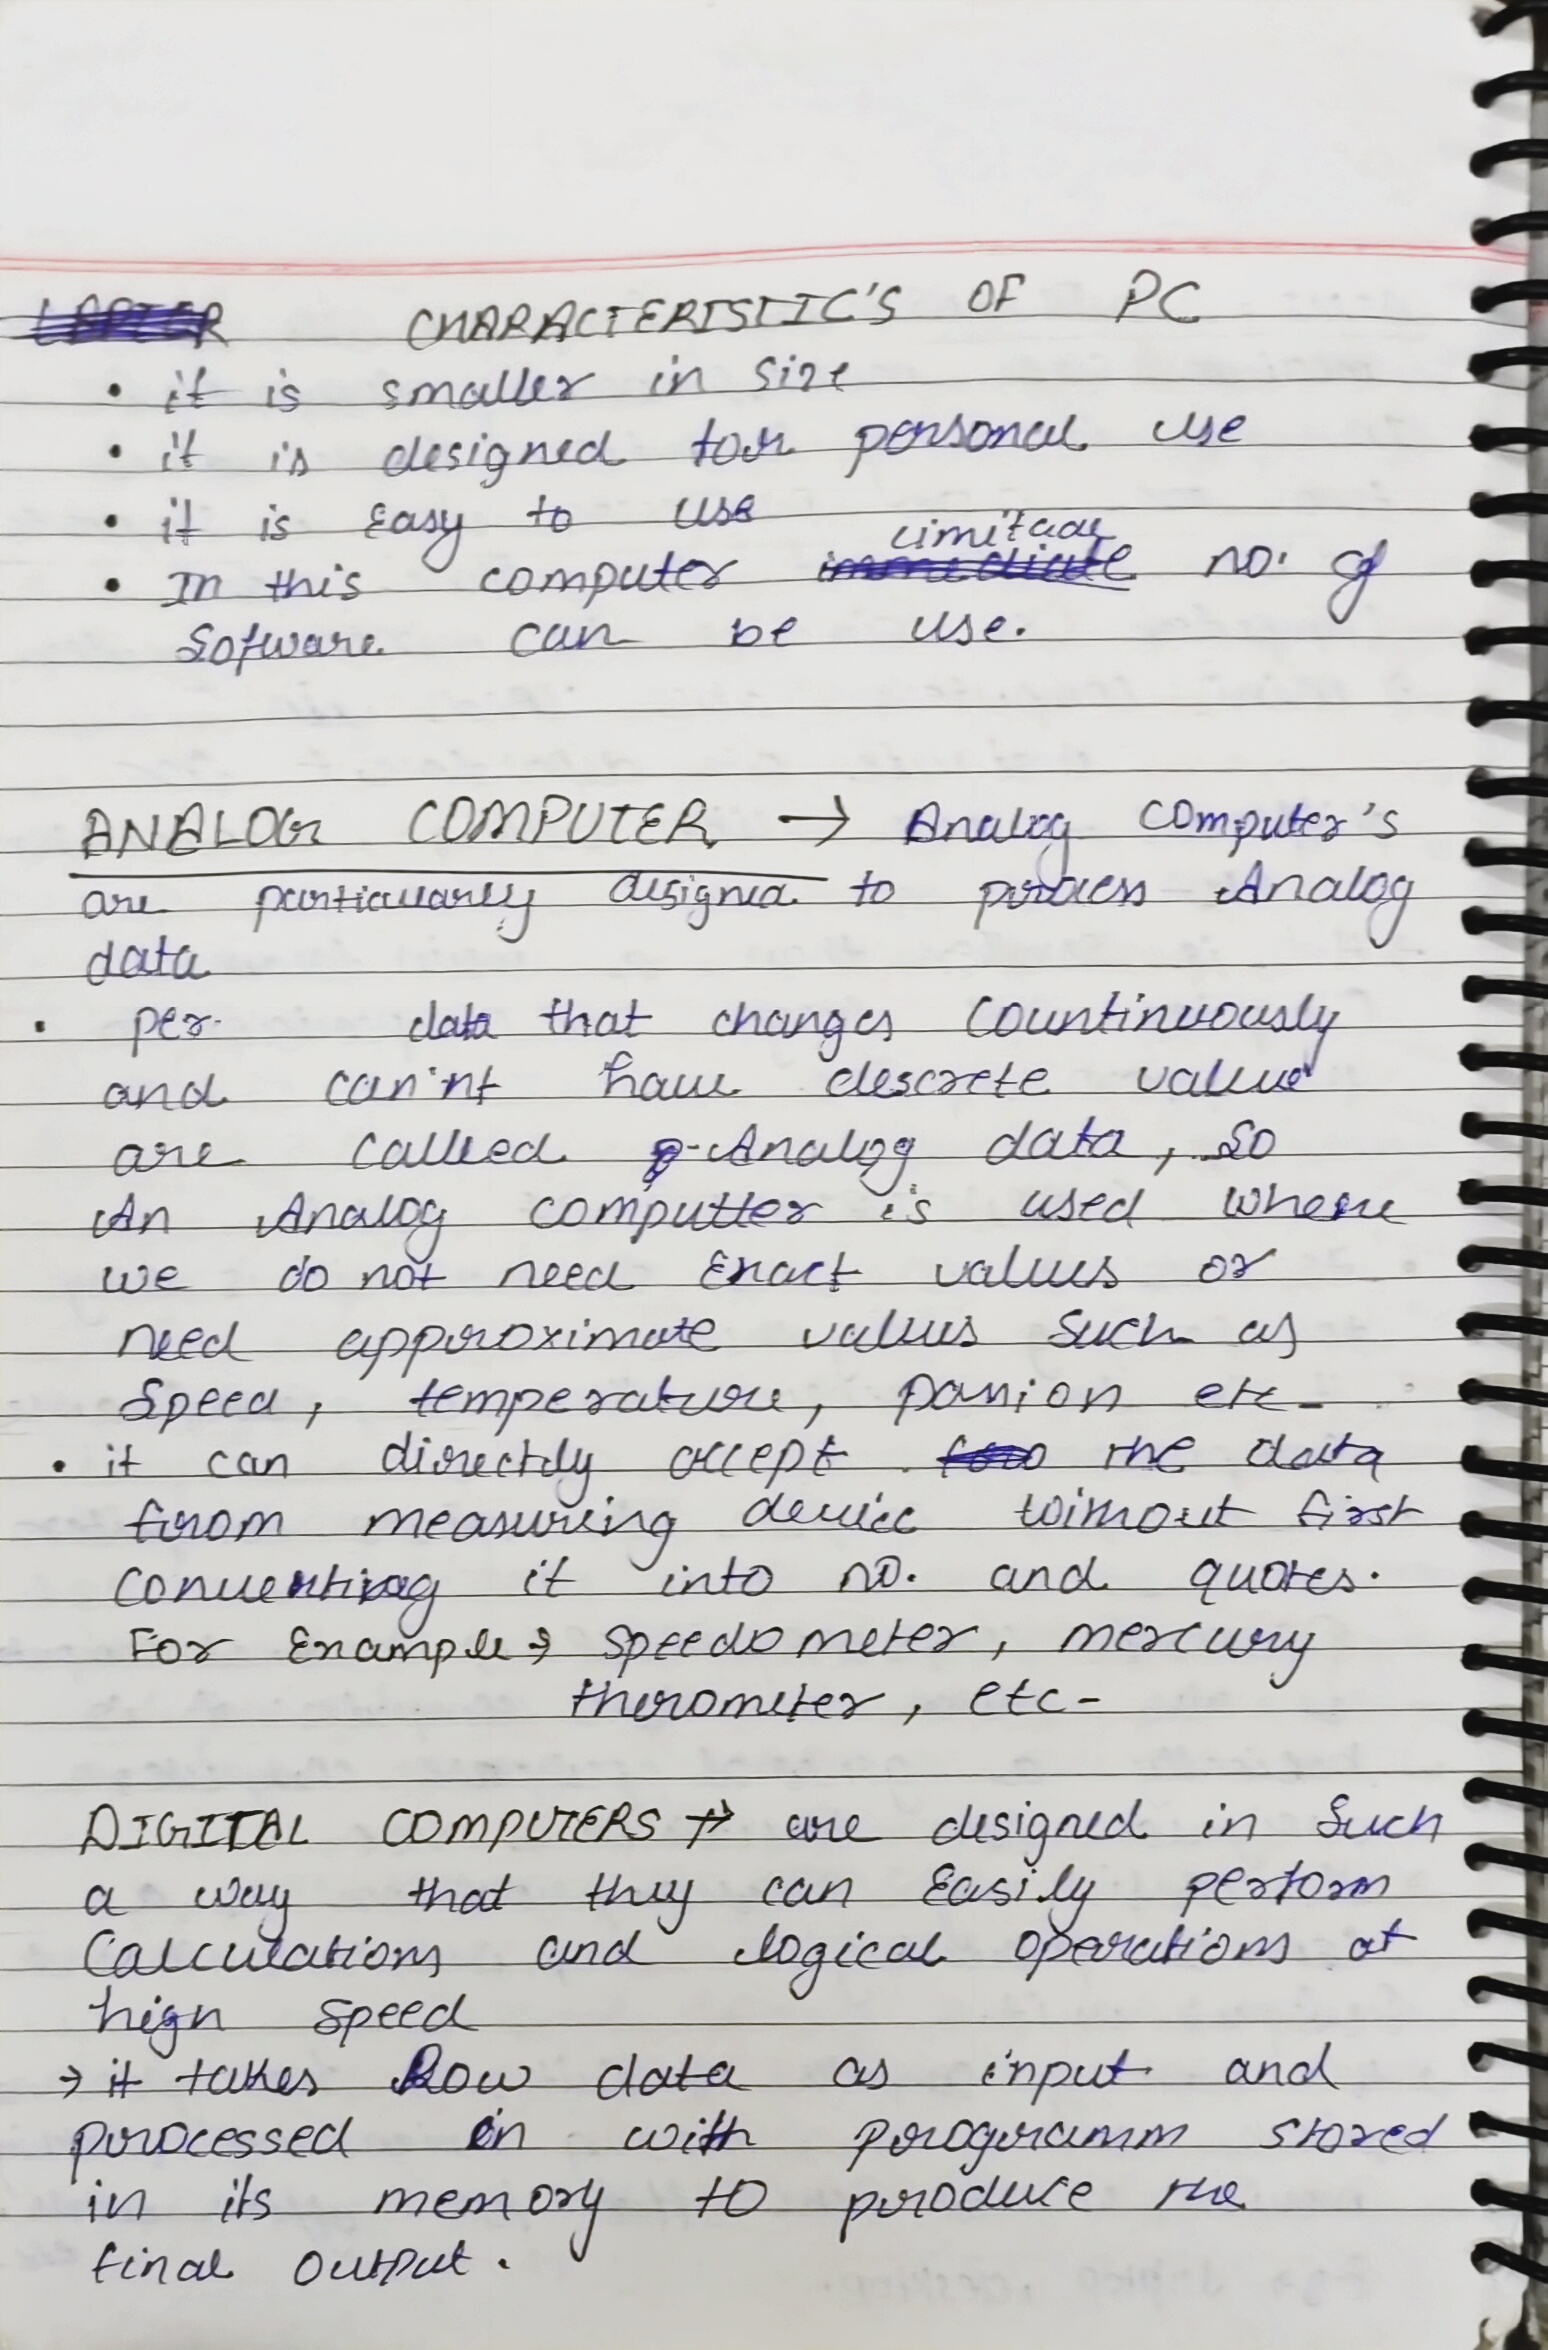 CHARACTERISTIC'S OF PC
• it is smaller in size
• it is designed for personal use
• it is Easy to use
• In this computer limitade no. of
Sofware can be use.
ANALOG COMPUTER → Analog computer's
are particularly designed to process Analog
data
• per. data that changes countinuously
and can'nt have descrete value
are called Analog data, so
An Analog computter is used where
we do not need Exact values or
need approximate values such as
Speed, temperature, etc.
• it can directly accept the data
from measuring device without first
converting it into no. and quotes.
For Example → speedometer, mercury
therometer, etc-
DIGITAL COMPUTERS → are designed in such
a way that they can Easily perform
Calculations and logical operations at
high speed
→ it takes Row data as input and
processed in with programm stored
in its memory to produce the
final output.